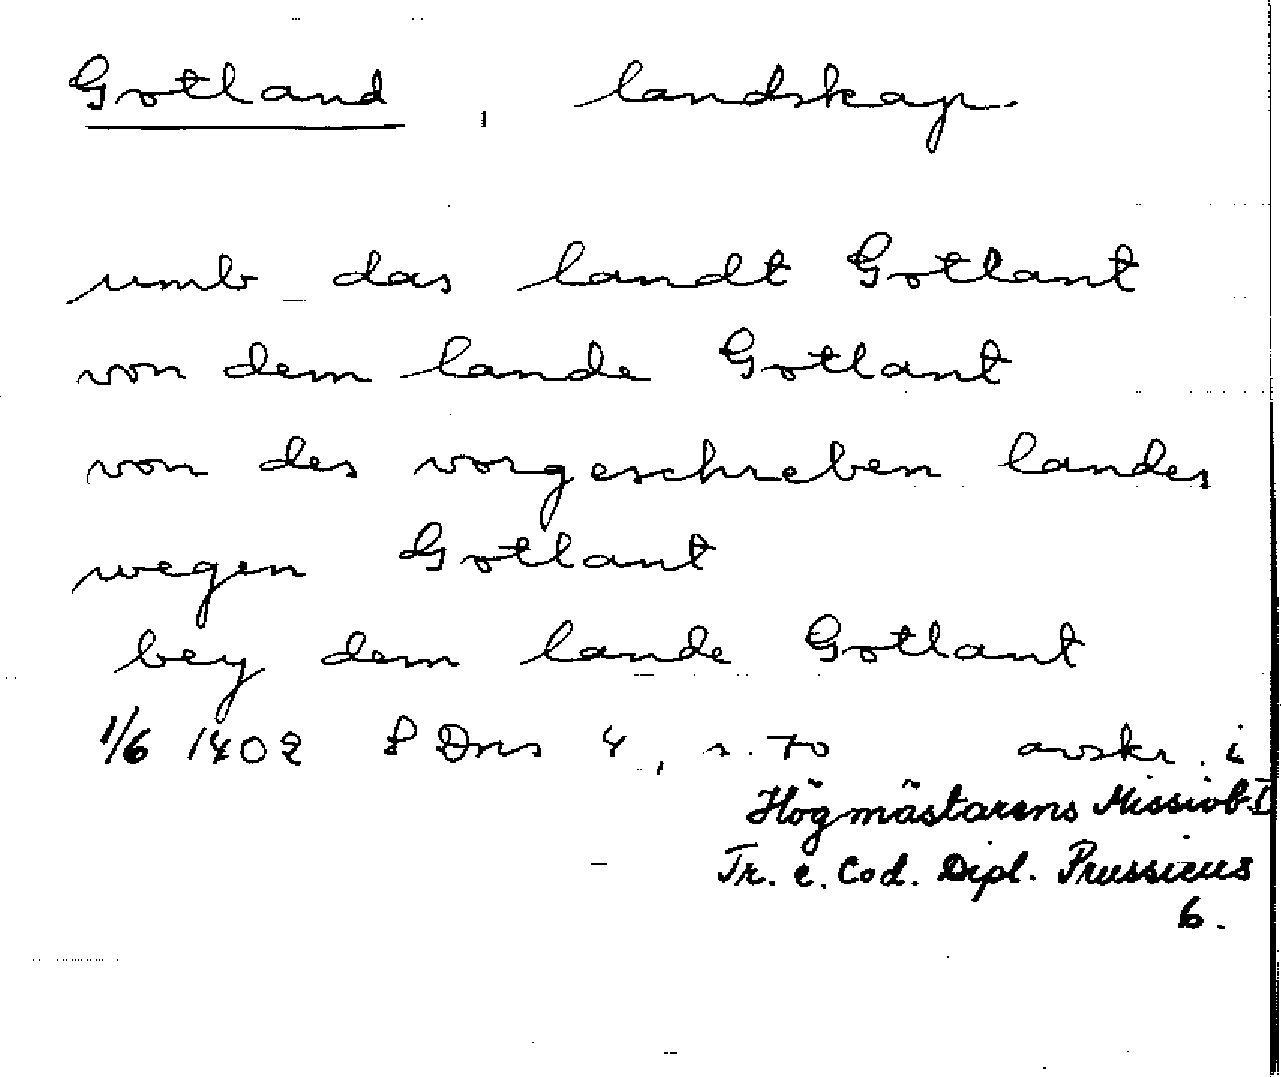 Gotland, landskap.
umb das landt Gotlant
von dem lande Gotlant
von des vorgeschreben landes
wegen Gotlant
bey dem lande Gotlant
1/6 1402 P Dns 4, s. 70 avskr. i
Högmästarens Missivb. I
Tr. e. Cod. Dipl. Prussicus
6.